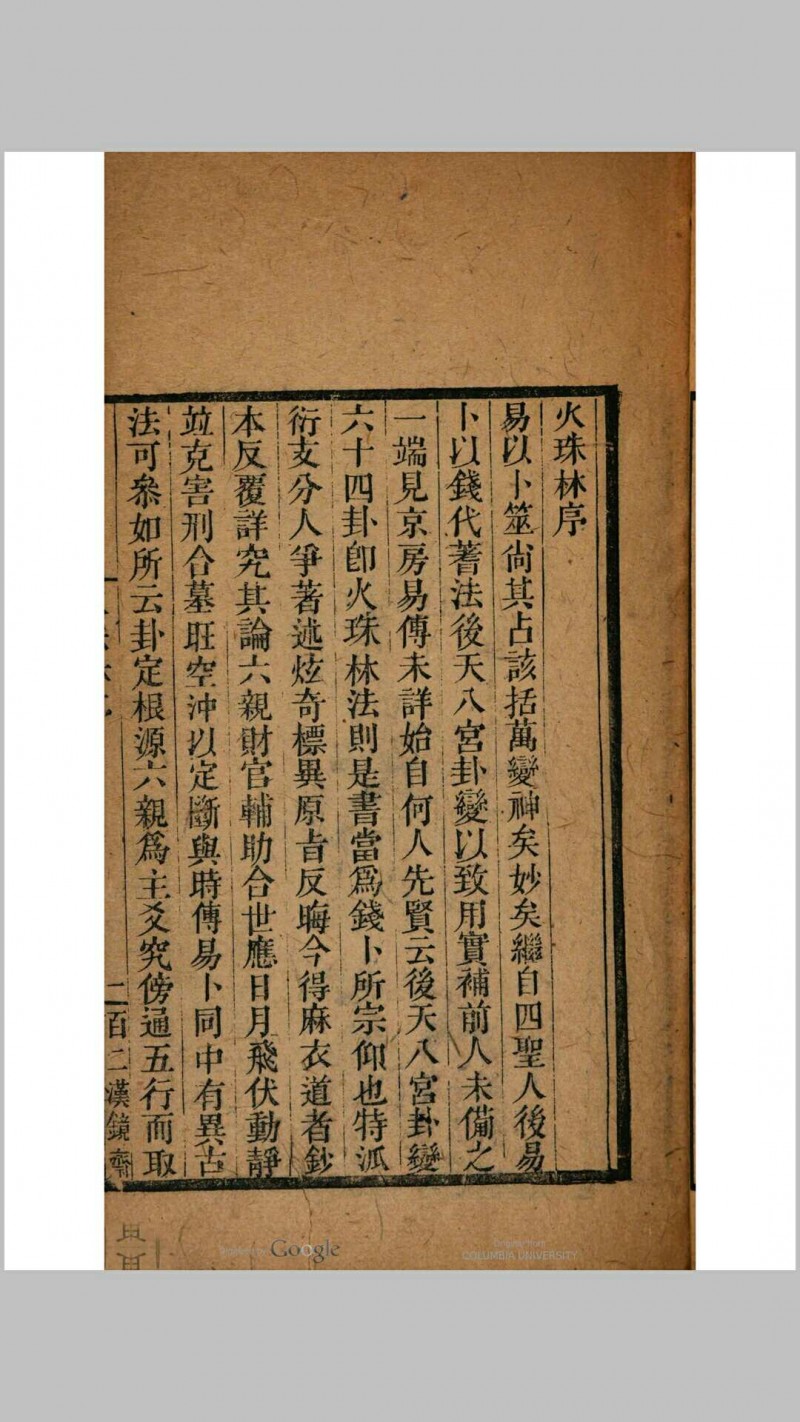 火珠林序
易以卜筮尙其占該括萬變神矣妙矣繼自四聖人後易
卜以錢代蓍法後天八宮卦變以致用實補前人未備之
一端見京房易傳未詳始自何人先賢云後天八宮卦變
六十四卦卽火珠林法則是書當爲錢卜所宗仰也特派
衍支分人爭著述炫奇標異原旨反晦今得麻衣道者鈔
本反覆詳究其論六親財官輔助合世應日月飛伏動靜
竝克害刑合墓旺空沖以定斷與時傳易卜同中有異古
法可叅如所云卦定根源六親爲主爻究傍通五行而取
二百二漢鏡齋
Google
COLUMBIA UNIVERSITY